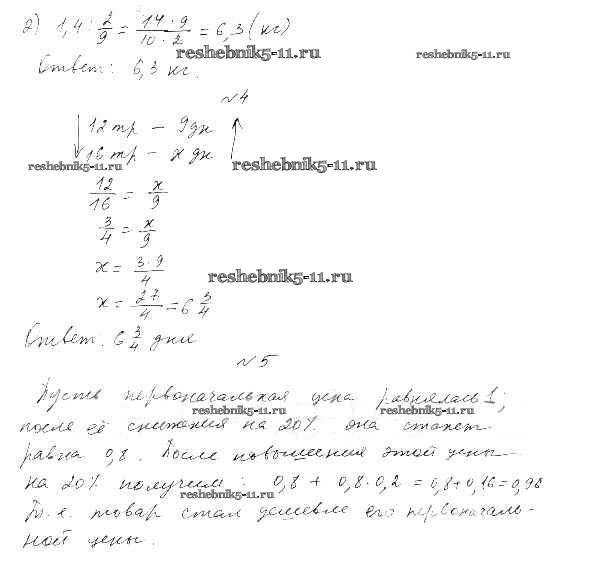 2) 1,4 : 2/9 = 14 · 9 / 10 · 2 = 6,3 (кг)
reshebnik5-11.ru
reshebnik5-11.ru
Ответ: 6,3 кг.
№4
12 тр – 9 дн
16 тр – x дн
reshebnik5-11.ru
reshebnik5-11.ru
12/16 = x/9
3/4 = x/9
x = 3·9/4
reshebnik5-11.ru
x = 27/4 = 6 3/4
Ответ: 6 3/4 дня
№5
Пусть первоначальная цена равнялась 1;
reshebnik5-11.ru
reshebnik5-11.ru
после её снижения на 20% она станет
равна 0,8. После повышения этой цены
на 20% получим: 0,8 + 0,8·0,2 = 0,8+0,16=0,96
reshebnik5-11.ru
Т.е. товар стал дешевле его первоначаль-
ной цены.